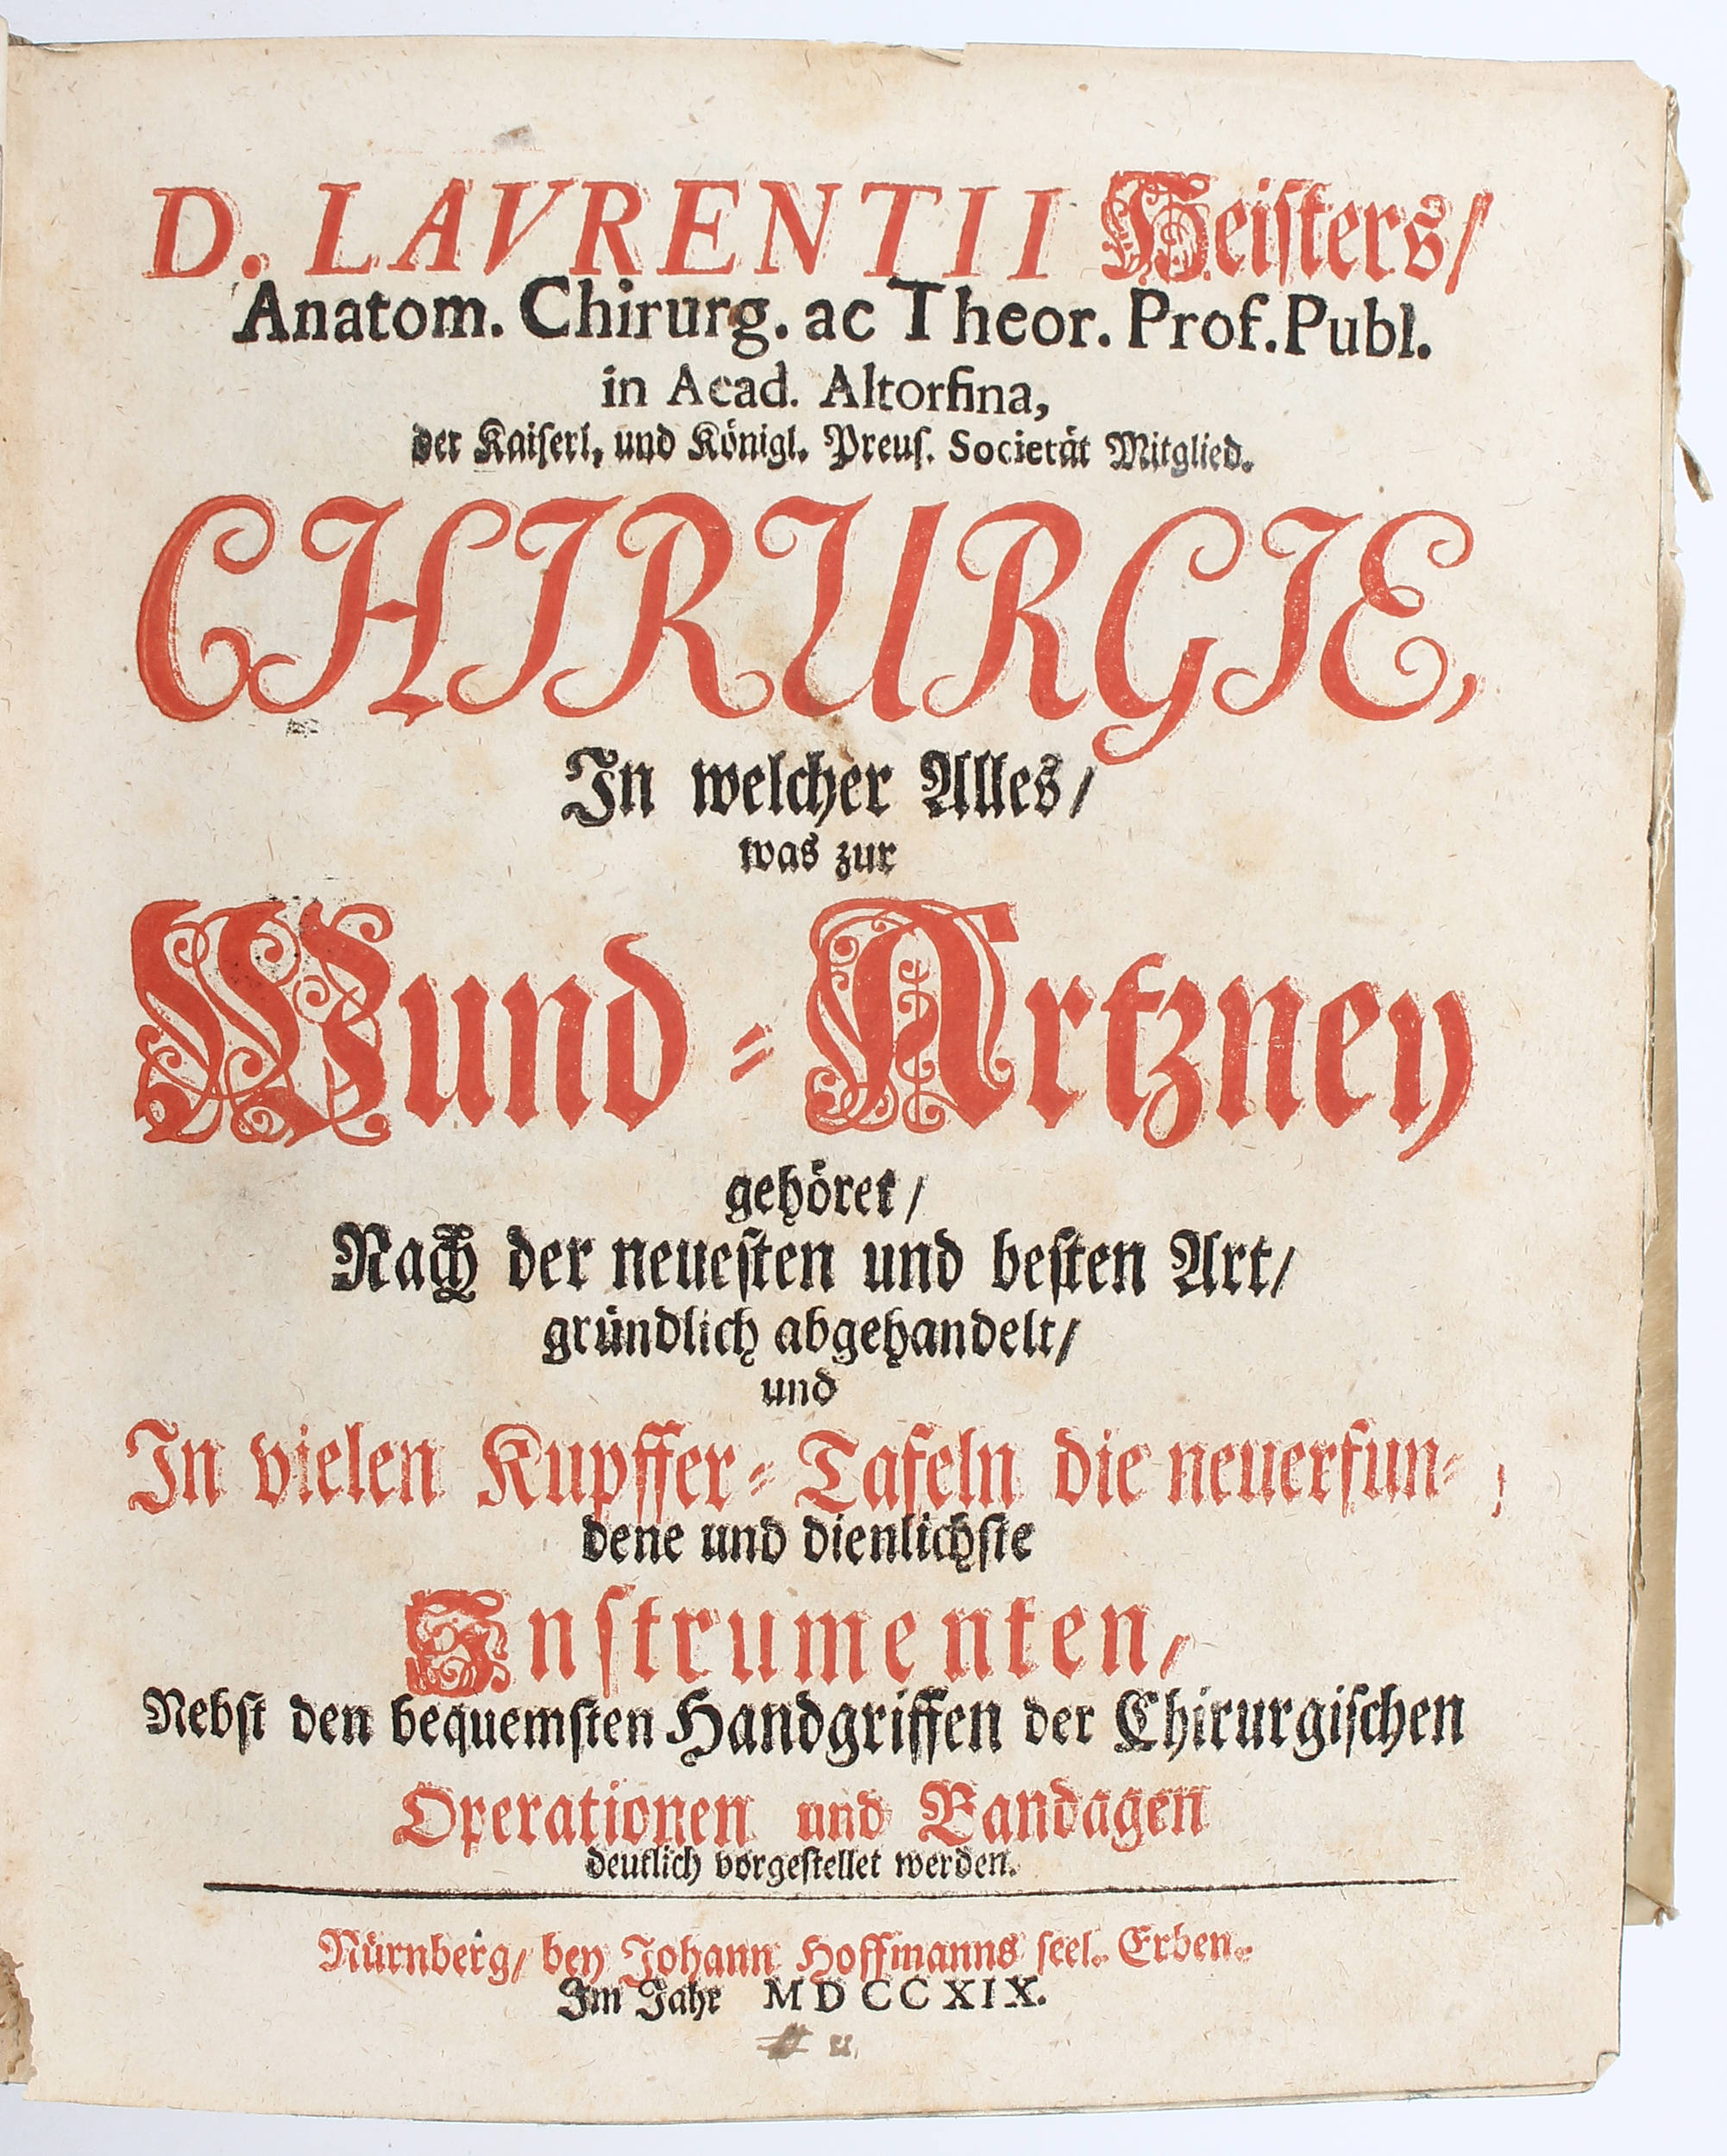 D. LAVRENTII Heiſters/
Anatom. Chirurg. ac Theor. Prof. Publ.
in Acad. Altorfina,
der Kaiſerl, und Königl. Preuſ. Societät Mitglied.
CHIRURGIE,
In welcher Alles/
was zur
Wund-Artzney
gehöret/
Nach der neueſten und beſten Art/
gründlich abgehandelt/
und
In vielen Kupffer-Tafeln die neuerfun-
dene und dienlichſte
Inſtrumenten/
Nebſt den bequemſten Handgriffen der Chirurgiſchen
Operationen und Bandagen
deutlich vorgeſtellet werden.
Nürnberg/ bey Johann Hoffmanns ſeel. Erben.
Im Jahr MDCCXIX.